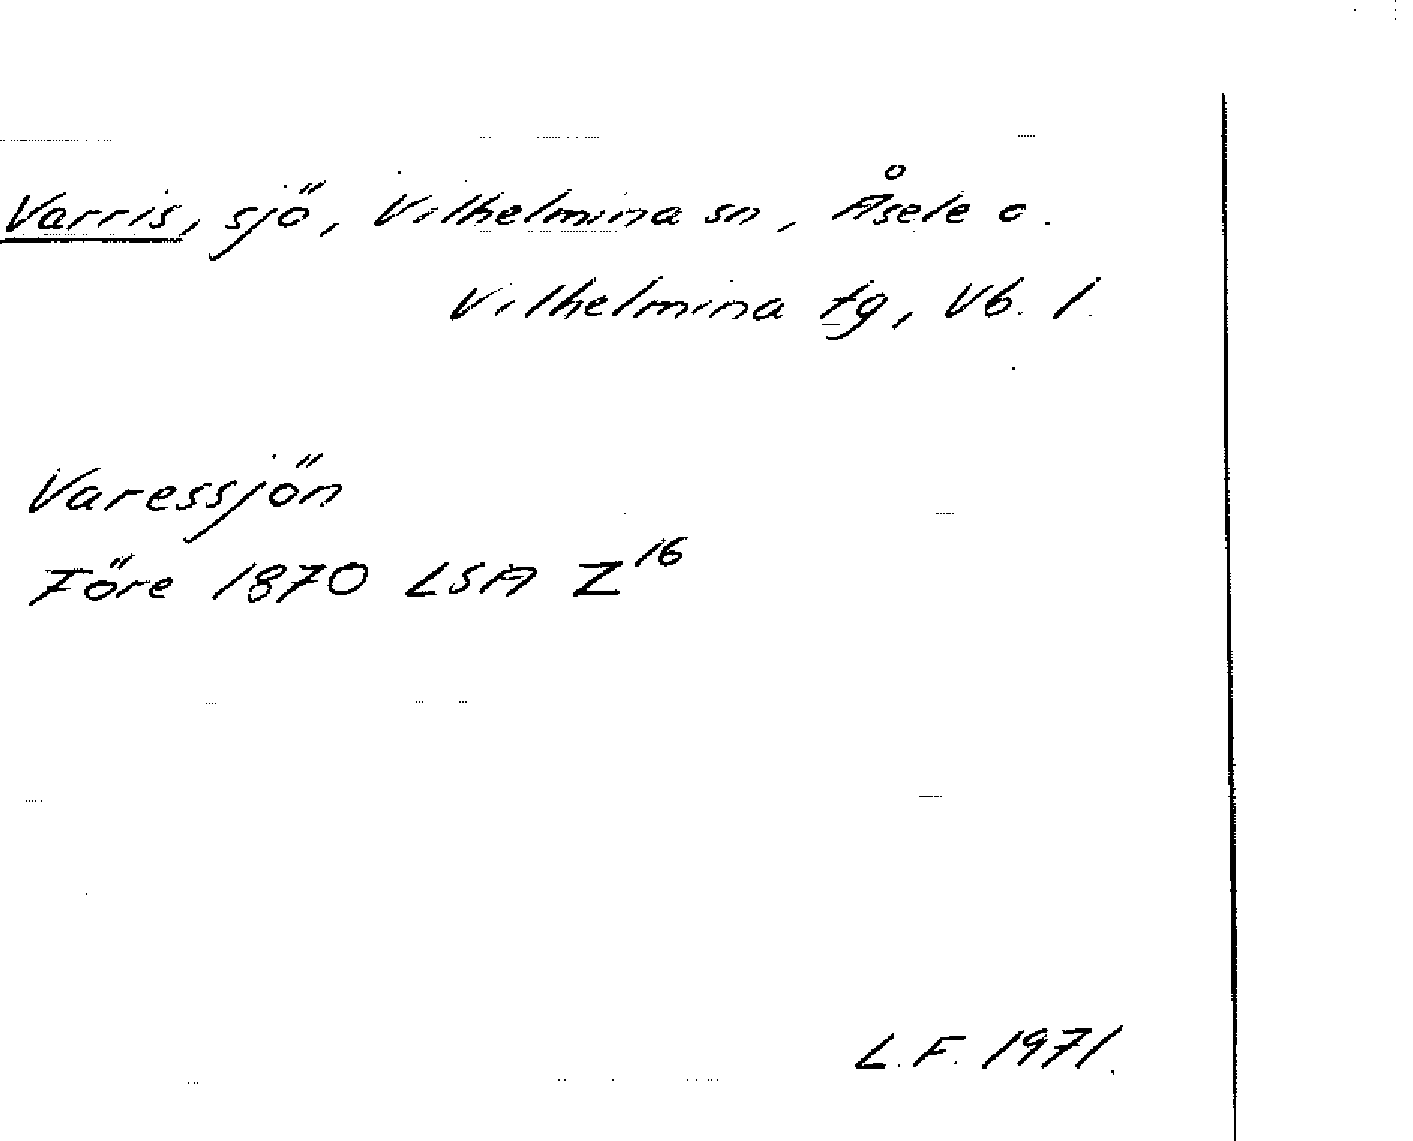 Varris, sjö, Vilhelmina sn, Åsele o.
Vilhelmina tg, Vb. l.
Varessjön
Före 1870 LSA Z16
L.F. 1971.